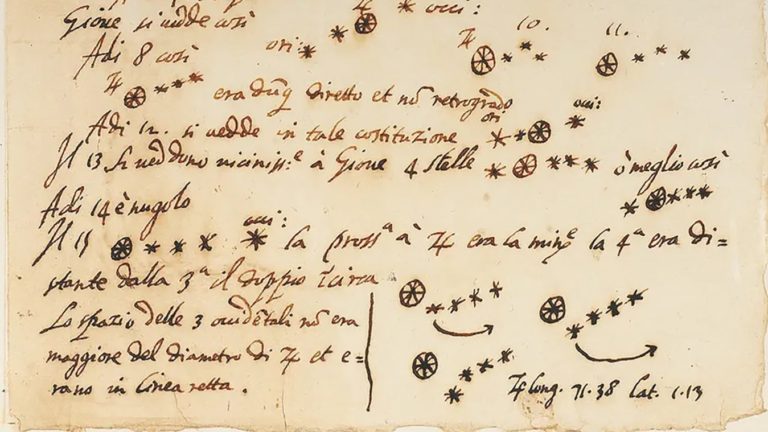 Gioue si uedde così ♃ occi:
Adi 8 così ori: ♃ 10. 11.
♃ era dūq diretto et nō retrogrado
Adi 12. si uedde in tale costituzione ori occi:
Il 13 si ueddono uiciniss.e à Gioue 4 stelle ò meglio così
Adi 14 è nugolo
Il 15 occi: la pross.a à ♃ era la min.e la 4.a era di=
stante dalla 3.a il doppio īcirca
Lo spazio delle 3 occidētali nō era
maggiore del diametro di ♃ et e=
rano in linea retta.
♃ long. 71.38 lat. 1.13